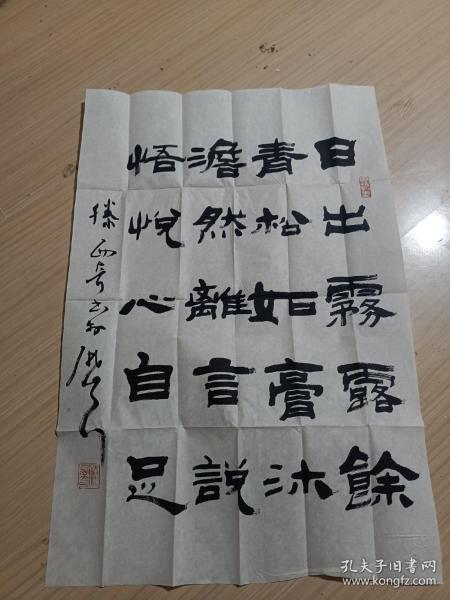 日出霧露餘
青松如膏沐
澹然離言說
悟悅心自足
孔夫子旧书网
www.kongfz.com